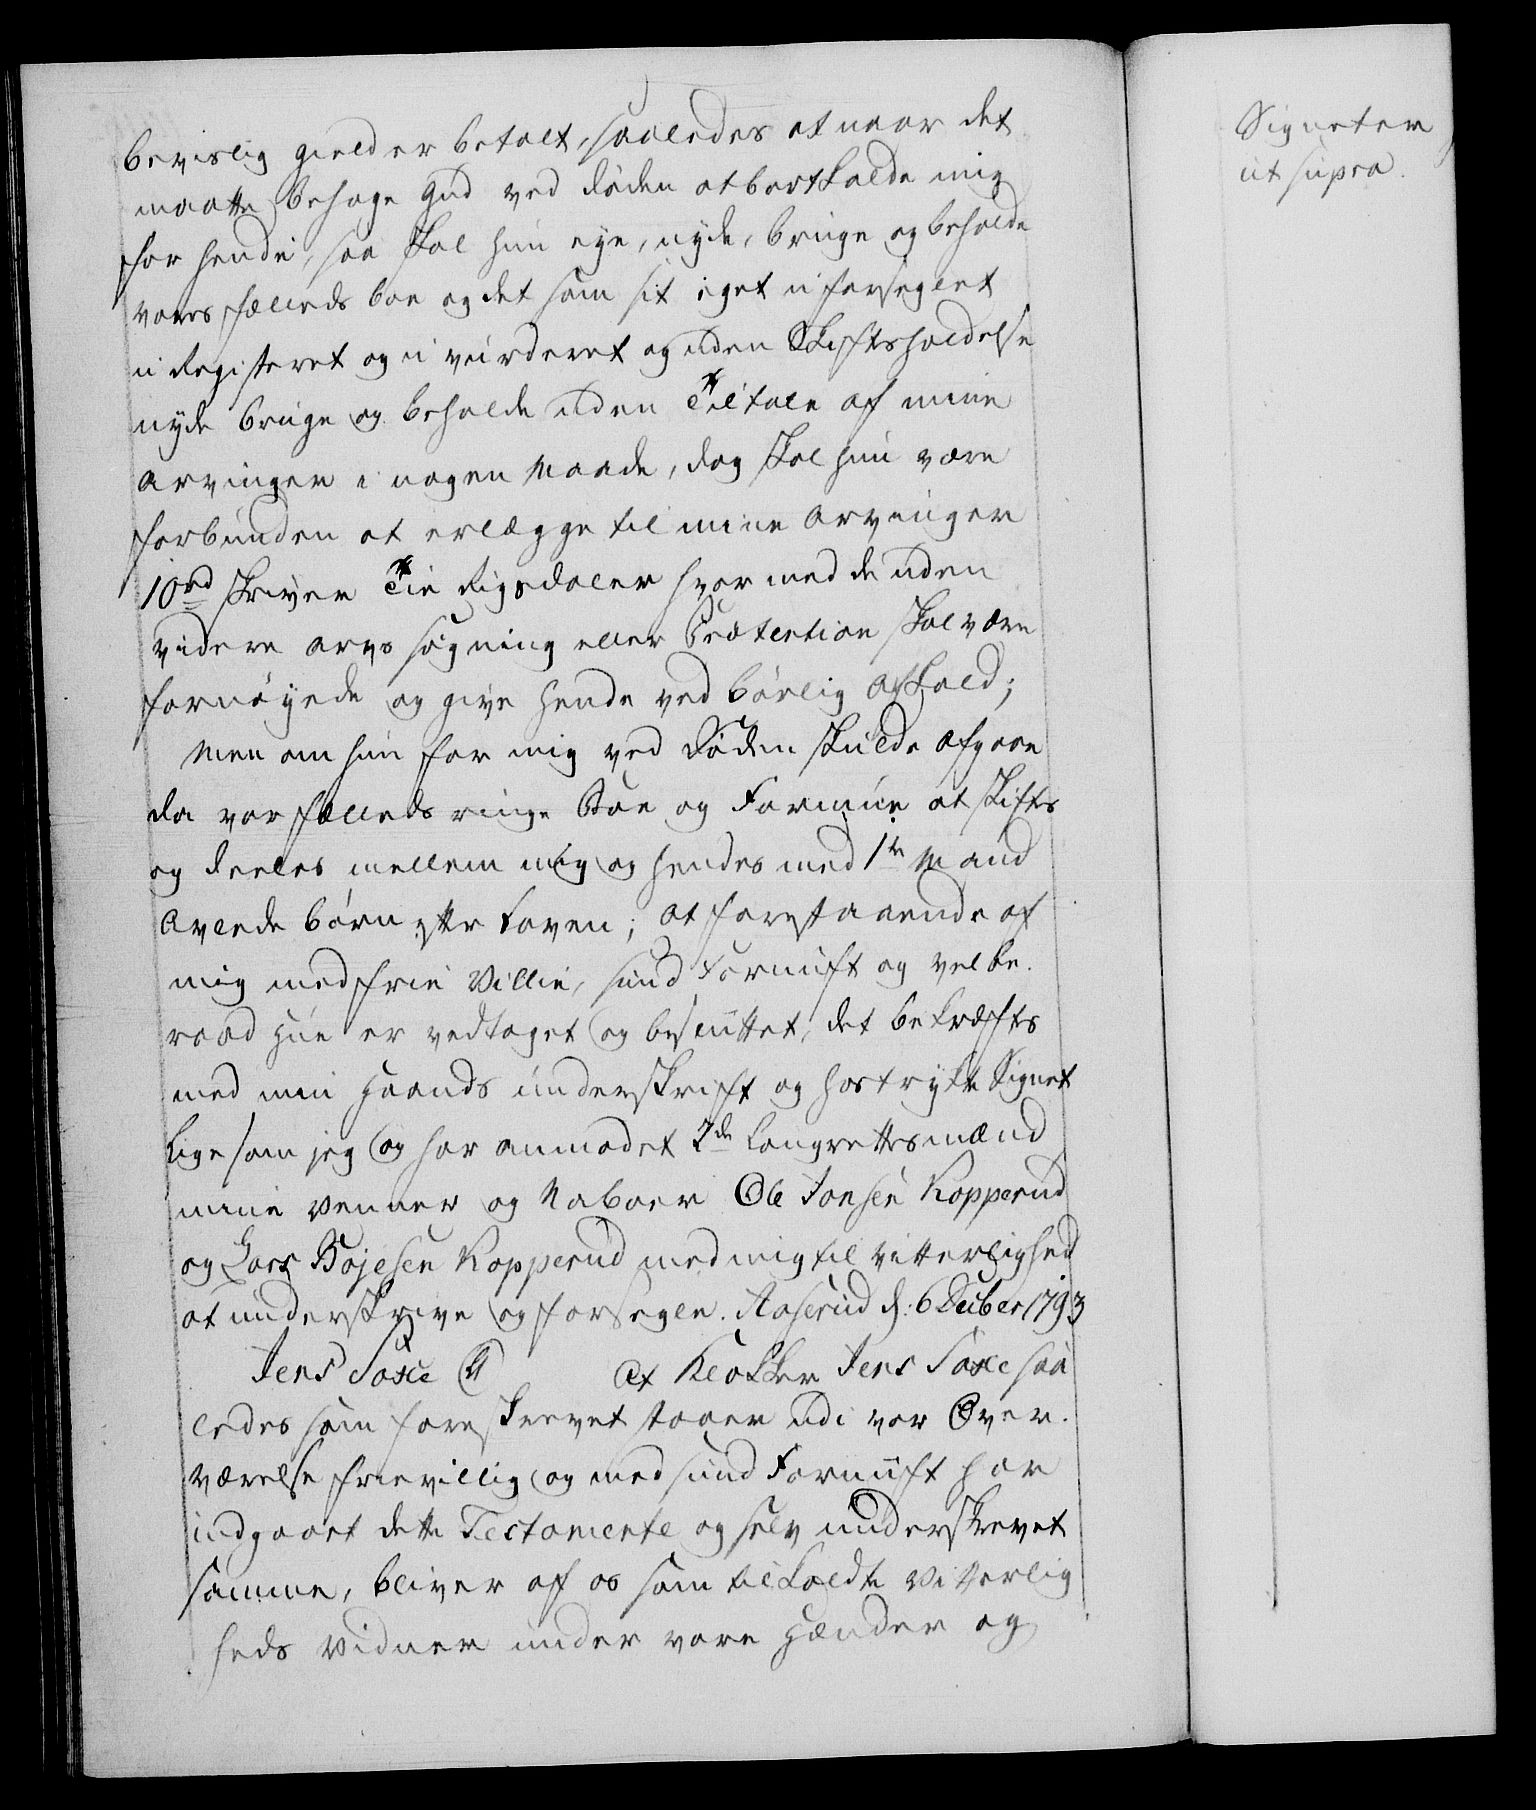 bevislig gield er betalt, saaledes at naar det
maatte behage Gud ved døden at bortkalde mig
for hende, saa skal hun eye, nyde, bruge og beholde
vores fælleds boe og det som sit eget uforseglet
u Registeret og u vurderet og uden Skiftsholdelse
nyde bruge og beholde uden Tiltale af mine
arvinger i nogen Maade, dog skal hun være
forbunden at erlægge til mine Arvinger
10rd skriver Tie Rigsdaler hvormed de uden
videre arvs søgning eller Prætention skal være
fornøyede og give hende ved børlig Afkald;
Men om hun for mig ved Døden skulde afgaae
da vor fælleds ringe Boe og Formue at skiftes
og deeles mellem mig og hendes med 1te Mand
Avlede børn efter Loven; at forestaaende af
mig med frie Villie, sund Fornuft og velbe-
raad Hue er vedtaget og besluttet, det bekræftes
med min Haands underskrift og hostrykte Signet
ligesom jeg og har anmodet 2de Laugrettesmænd
mine Venner og Naboer Ole Jonsen Kopperud
og Lars Bojesen Kopperud med mig til Vitterlighed
at underskrive og forsegle. Aaserud d: 6 Decber 1793
Jens Saxe At Klokker Jens Saxe saa
ledes som foreskrevet staaer udi vor Over-
værelse frievillig og med sund Fornuft har
indgaaet dette Testamente og selv underskrevet
samme, bliver af os som tilkaldte Vitterlig
heds Vidner under vore Hænder og
Signeter
ut supra.